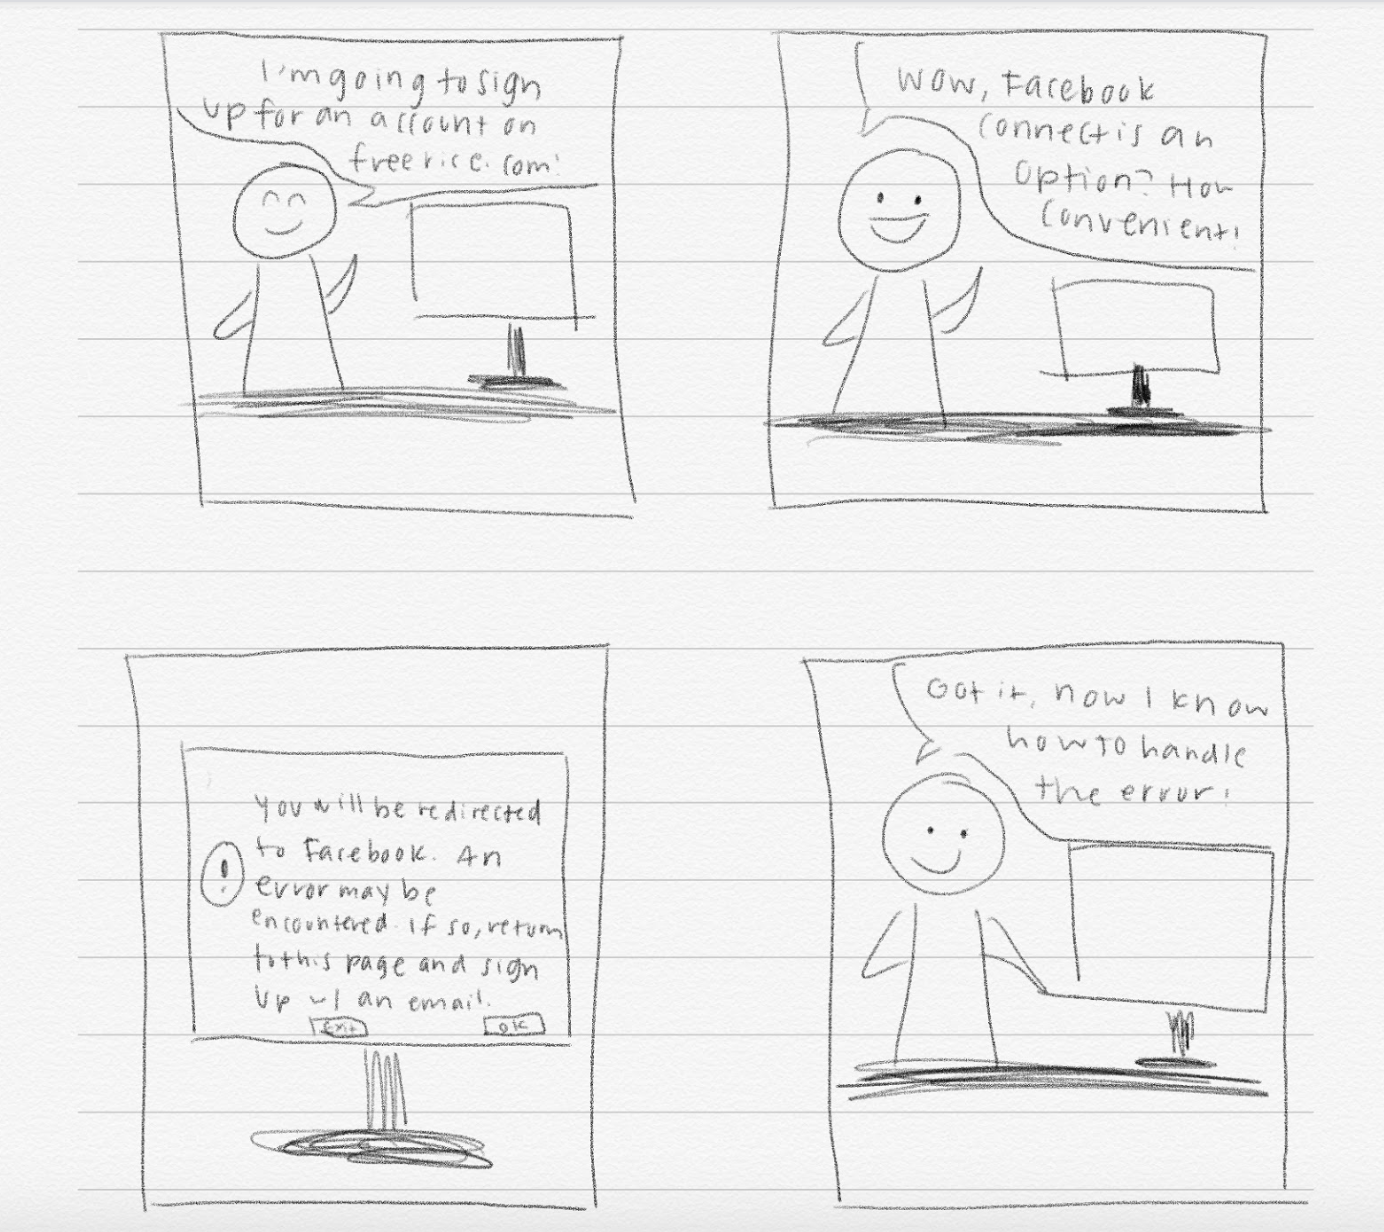 I'm going to sign
up for an account on
freerice.com!
Wow, Facebook
connect is an
option? How
convenient!
You will be redirected
to Facebook. An
error may be
encountered. If so, return
to this page and sign
up w/ an email.
!
Exit
OK
Got it, now I know
how to handle
the error!